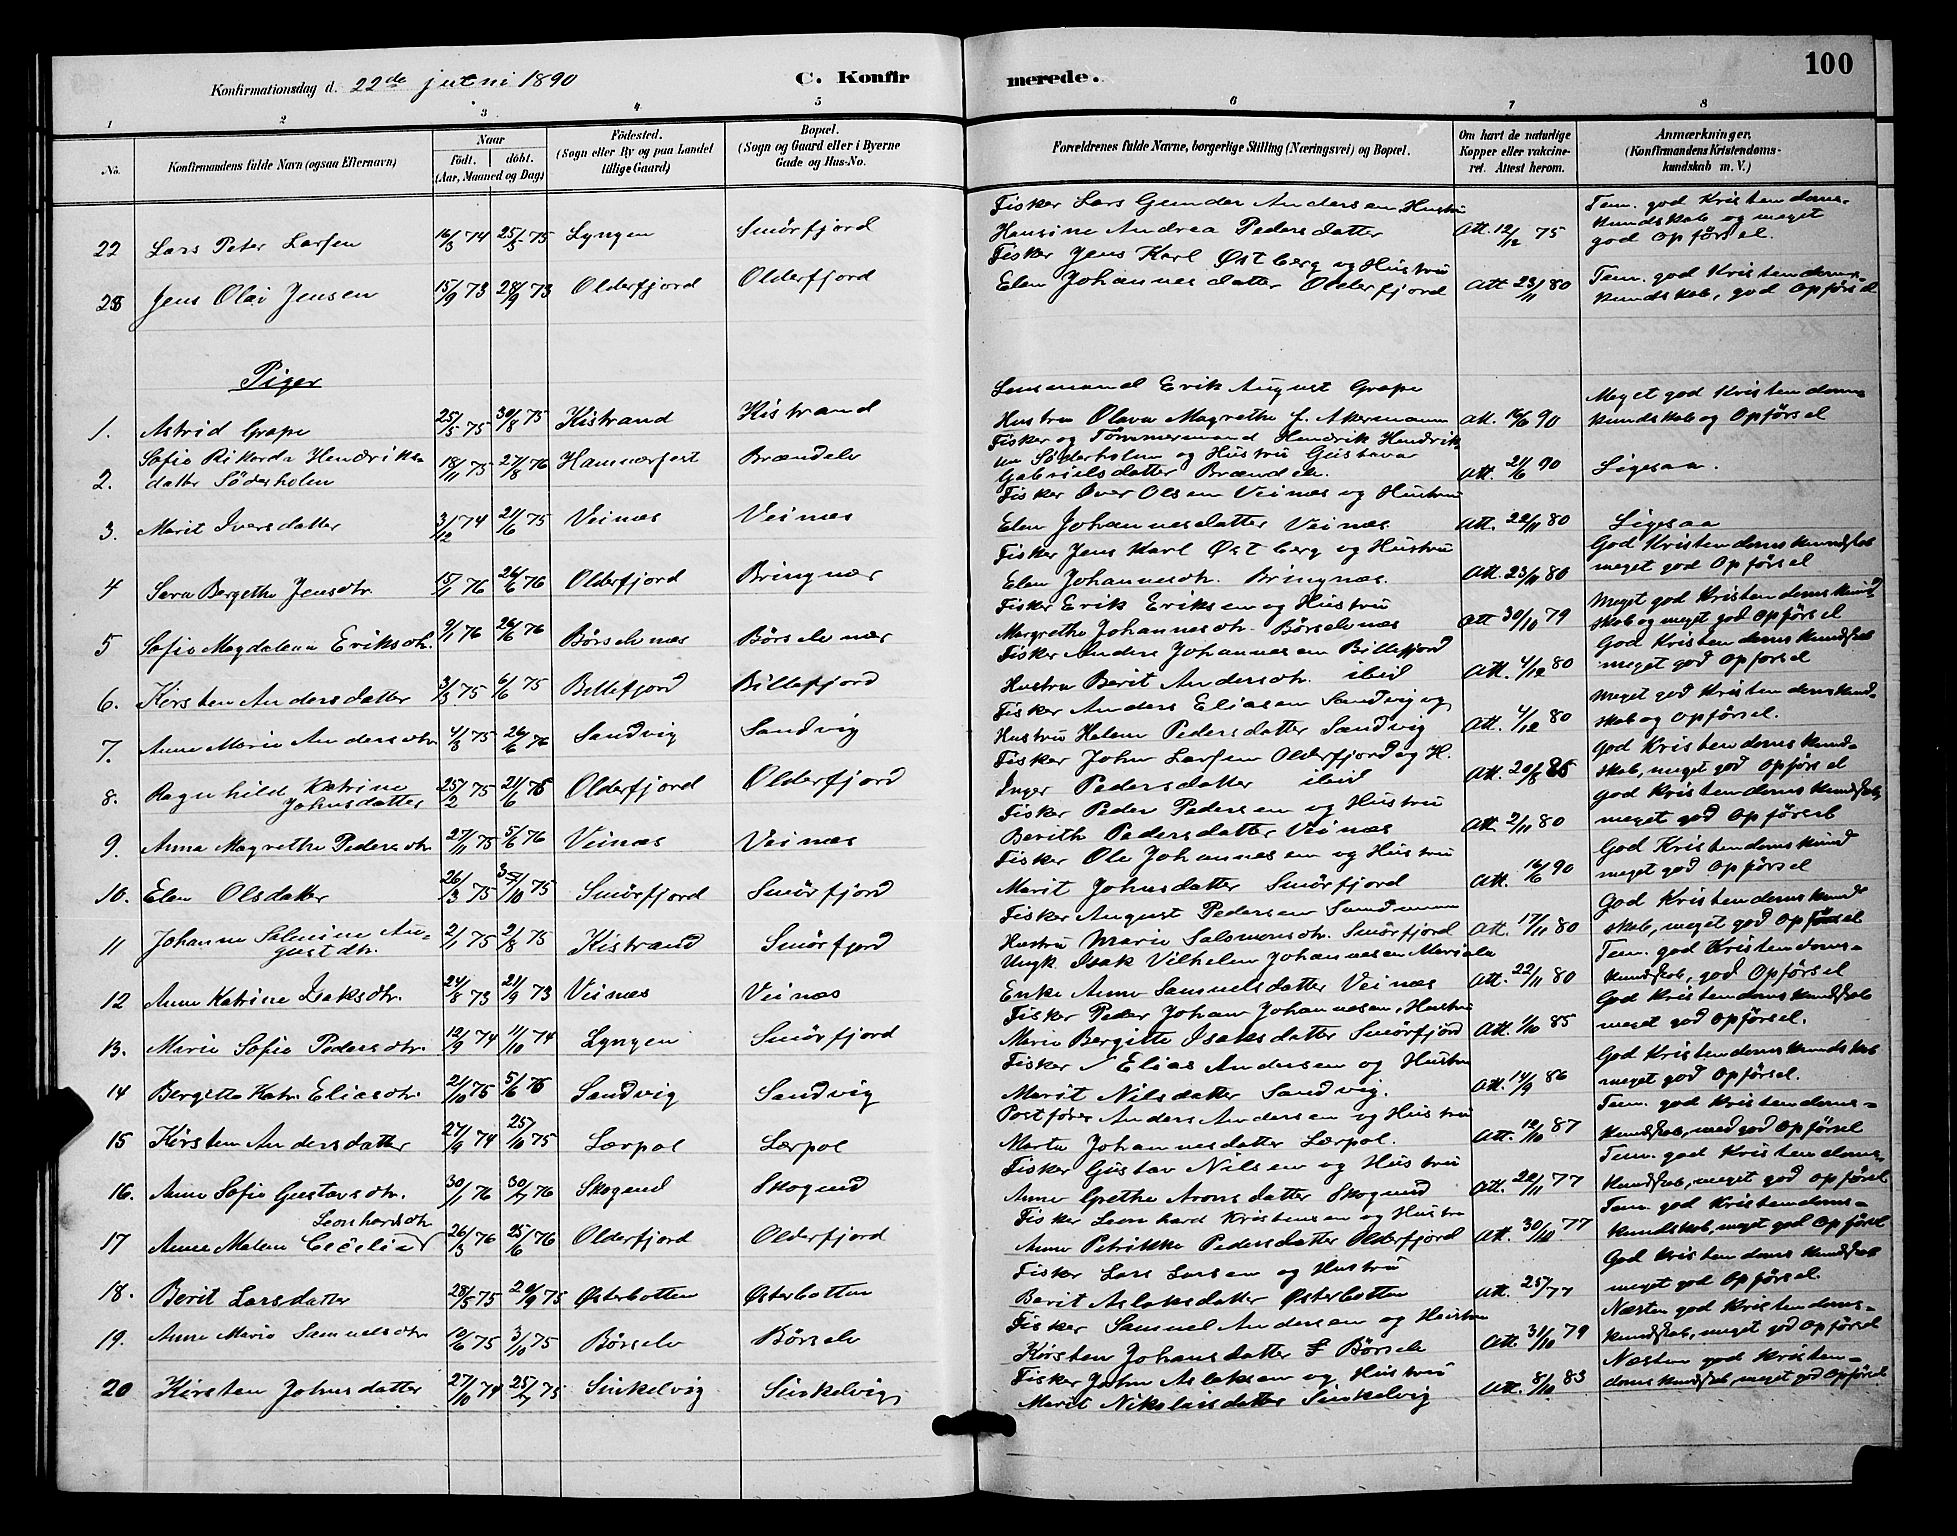 100
Konfirmationsdag d. 22de juni 1890
C. Konfirmerede.
1 2 3 4 5 6 7 8
No.
Konfirmandens fulde Navn (ogsaa Efternavn)
Naar
född. döbt.
(Aar, Maaned og Dag)
Födested.
(Sogn eller By og paa Landet
tillige Gaard)
Bopæl.
(Sogn og Gaard eller i Byerne
Gade og Hus-No.
Forældrenes fulde Navne, borgerlige Stilling (Næringsvei) og Bopæl.
Om havt de naturlige
Kopper eller vakcine-
ret. Attest herom.
Anmærkninger.
(Konfirmandens Kristendoms-
kundskab m. V.)
22 Lars Peter Larsen 16/3 74 25/3 75 Lyngen Smörfjord Fisker Lars Gunder Andersen, Hustru
Hansine Andrea Pedersdatter Att. 12/12 75 Tem. god Kristendoms-
kundskab og meget
god Opförsel.
23 Jens Olai Jensen 15/9 73 28/9 73 Olderfjord Olderfjord Fisker Jens Karl Østberg og Hustru
Elen Johannesdatter Olderfjord Att 23/11 80 Tem. god Kristendoms-
kundskab, god Opförsel
Piger
1. Astrid Grape 25/5 75 30/8 75 Kistrand Kistrand Lensmand Erik August Grape
Hustru Olava Magrethe f. Akermann Att. 16/6 90 Meget god Kristendoms-
kundskab og Opförsel
2. Sofie Rikarda Hendriks-
datter Söderholm 18/11 75 27/8 76 Hammerfest Brændelv Fisker og Tømmermand Hendrik Hendrik-
sen Söderholm og Hustru Gustava
Gabrielsdatter Brændelv. Att. 21/6 90 Ligesaa.
3. Marit Iversdatter 3/12 74 21/6 75 Veinæs Veinæs Fisker Iver Olsen Veinæs og Hustru
Elen Johannesdatter Veinæs Att. 22/11 80 Ligesaa
4 Sara Bergethe Jensdtr. 15/1 76 26/6 76 Olderfjord Bringnæs Fisker Jens Karl Østberg og Hustru
Elen Johannesdtr. Bringnæs. Att. 23/11 80 God Kristendomskundskab
meget god Opförsel
5 Sofie Magdalena Eriksdtr. 9/1 76 26/6 76 Børselvnæs Børselvnæs Fisker Erik Eriksen og Hustru
Margrethe Johannesdtr. Børselvnæs Att 30/10 79 Meget god Kristendomskund-
skab og meget god Opförsel
6. Kirsten Andersdatter 3/3 75 6/6 75 Billefjord Billefjord Fisker Anders Johannesen Billefjord
Hustru Berit Andersdtr. ibid Att. 4/12 80 God Kristendomskundskab
meget god Opförsel
7. Anne Marie Andersdtr. 4/8 75 26/6 76 Sandvig Sandvig Fisker Anders Eliasen Sandvig og
Hustru Helene Pedersdatter Sandvig Att. 4/12 80 Meget god Kristendomskund-
skab og Opförsel.
8. Ragnhild Katrine
Johnsdatter 25/2 75 21/6 75 Olderfjord Olderfjord Fisker John Larsen Olderfjord og H.
Inger Pedersdatter ibid Att. 20/8 85 God Kristendomskund-
skab, meget god Opförsel
9. Anna Magrethe Pedersdtr. 27/11 75 5/6 76 Veinæs Veinæs Fisker Peder Pedersen og Hustru
Berith Pedersdatter Veinæs Att. 2/11 80 God Kristendomskundskab
meget god Opförsel
10. Elen Olsdatter 26/3 75 3/10 75 Smörfjord Smörfjord Fisker Ole Johannesen og Hustru
Marit Johnsdatter Smörfjord Att. 16/6 90 God Kristendomskund
meget god Opförsel
11 Johanne Salmine Au-
gustdtr. 2/1 75 2/8 75 Kistrand Smörfjord Fisker August Pedersen Sandmann
Hustru Marie Salomonsdtr. Smörfjord Att. 17/11 80 God Kristendomskund
skab, meget god Opförsel
12 Anne Katrine Isaksdtr. 24/8 73 21/9 73 Veinæs Veinæs Ungk. Isak Vilhelm Johannesen
Enke Anne Samuelsdatter Veinæs Att. 22/11 80 Tem. god Kristendoms-
kundskab, god Opförsel
13. Marie Sofie Pedersdtr. 12/9 74 11/10 74 Lyngen Smörfjord Fisker Peder Johan Johannesen, Hustru
Marie Bergitte Isaksdatter Smörfjord Att. 1/10 85 God Kristendomskundskab
meget god Opförsel.
14 Bergitte Katr. Eliasdtr. 21/10 75 5/6 76 Sandvig Sandvig Fisker Elias Andersen og Hustru
Marit Nilsdatter Sandvig. Att. 14/9 86 God Kristendomskundskab
meget god Opförsel.
15 Kirsten Andersdatter 27/9 74 25/10 75 Lærpol Lærpol Postfører Anders Andersen og Hustru
Marta Johannesdatter Lærpol. Att. 12/10 87 Tem. god Kristendoms-
kundskab, med god Opförsel
16. Anne Sofie Gustavsdtr. 30/1 76 30/7 76 Skogund Skogund Fisker Gustav Nilsen og Hustru
Anne Grethe Aronsdatter Skogund Att. 22/11 77 Tem. god Kristendoms-
kundskab, meget god Opförsel
17 Anne Malene Cecelia Leonhardsdtr 26/3 76 25/6 76 Olderfjord Olderfjord Fisker Leonhard Kristensen og Hustru
Anne Petrikke Pedersdatter Olderfjord Att. 30/10 77 Tem. god Kristendoms-
kundskab, meget god Opförsel
18. Berit Larsdatter 28/5 75 29/9 75 Østerbotten Østerbotten Fisker Lars Larsen og Hustru
Berit Aslaksdatter Østerbotten Att. 25/77 God Kristendomskundskab
meget god Opförsel.
19. Anne Marie Samuelsdtr 12/6 75 3/10 75 Børselv Børselv Fisker Samuel Andersen og Hustru
Kirsten Johansdatter Børselv Att. 31/10 79 Næsten god Kristendoms-
kundskab, meget god Opförsel
20 Kirsten Johnsdatter 27/10 74 25/7 75 Sinkelvig Sinkelvig Fisker John Aslaksen og Hustru
Marit Nikolaisdatter Sinkelvig Att. 8/10 83 Næsten god Kristen-
domskundskab, meget god Opförsel